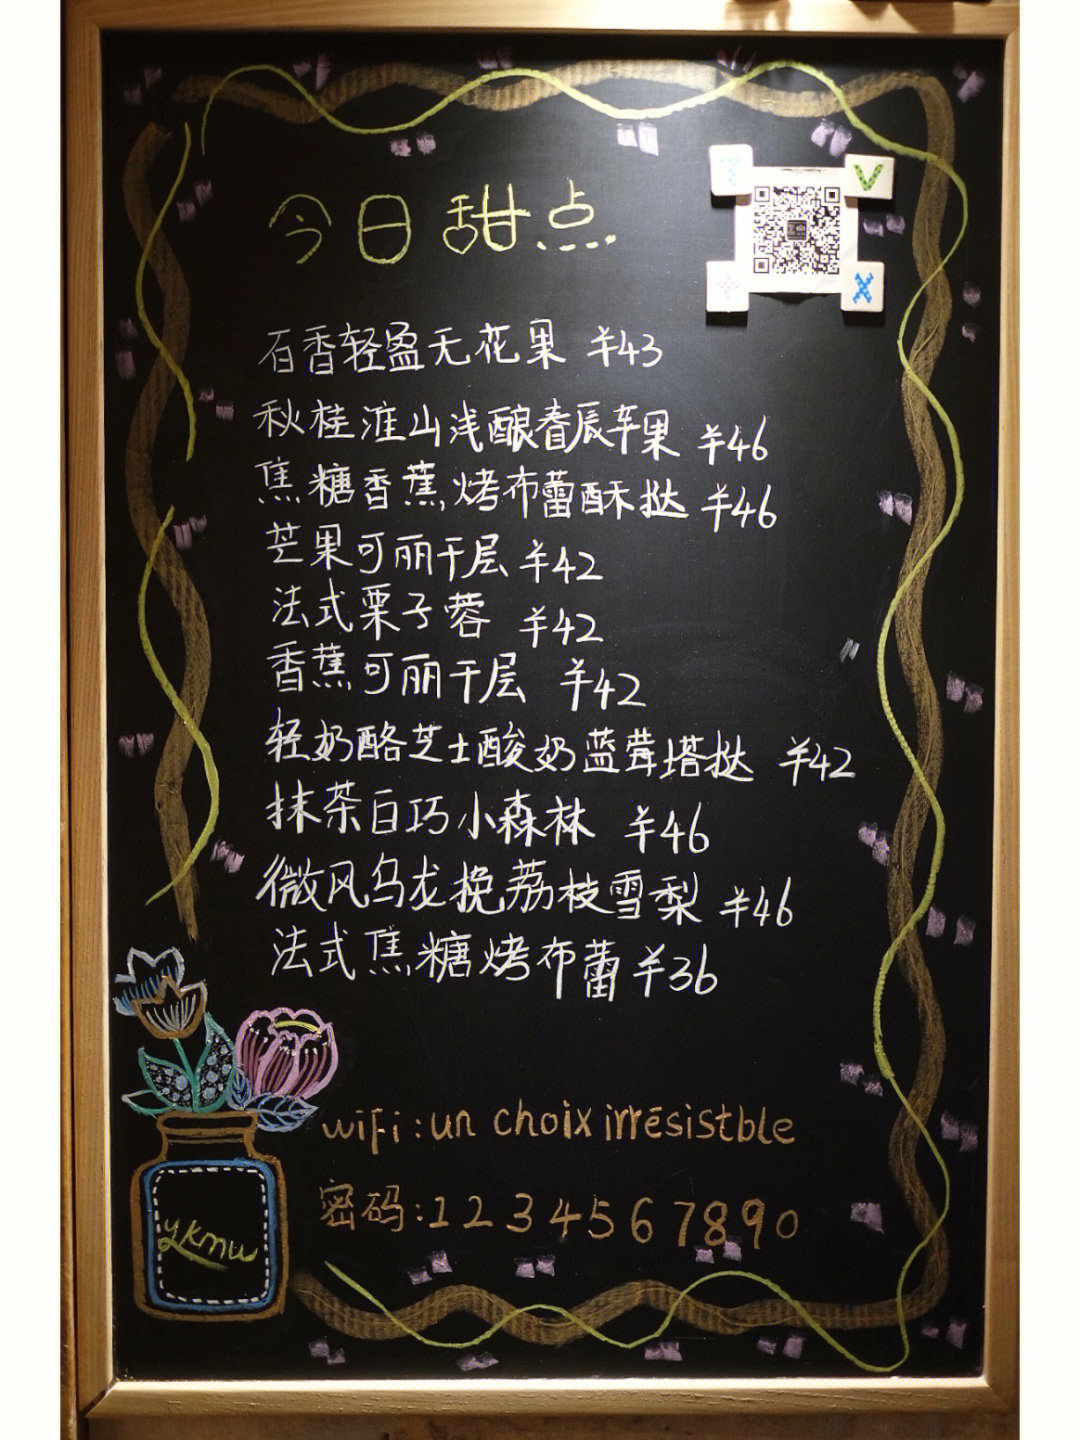 今日甜点
百香轻盈无花果 ¥43
秋桂淮山浅酿春辰苹果 ¥46
焦糖香蕉烤布蕾酥挞 ¥46
芒果可丽千层 ¥42
法式栗子蓉 ¥42
香蕉可丽千层 ¥42
轻奶酪芝士酸奶蓝莓塔挞 ¥42
抹茶白巧小森林 ¥46
微风乌龙挽荔枝雪梨 ¥46
法式焦糖烤布蕾 ¥36
wifi:un choix irresistble
密码:1234567890
ykmu